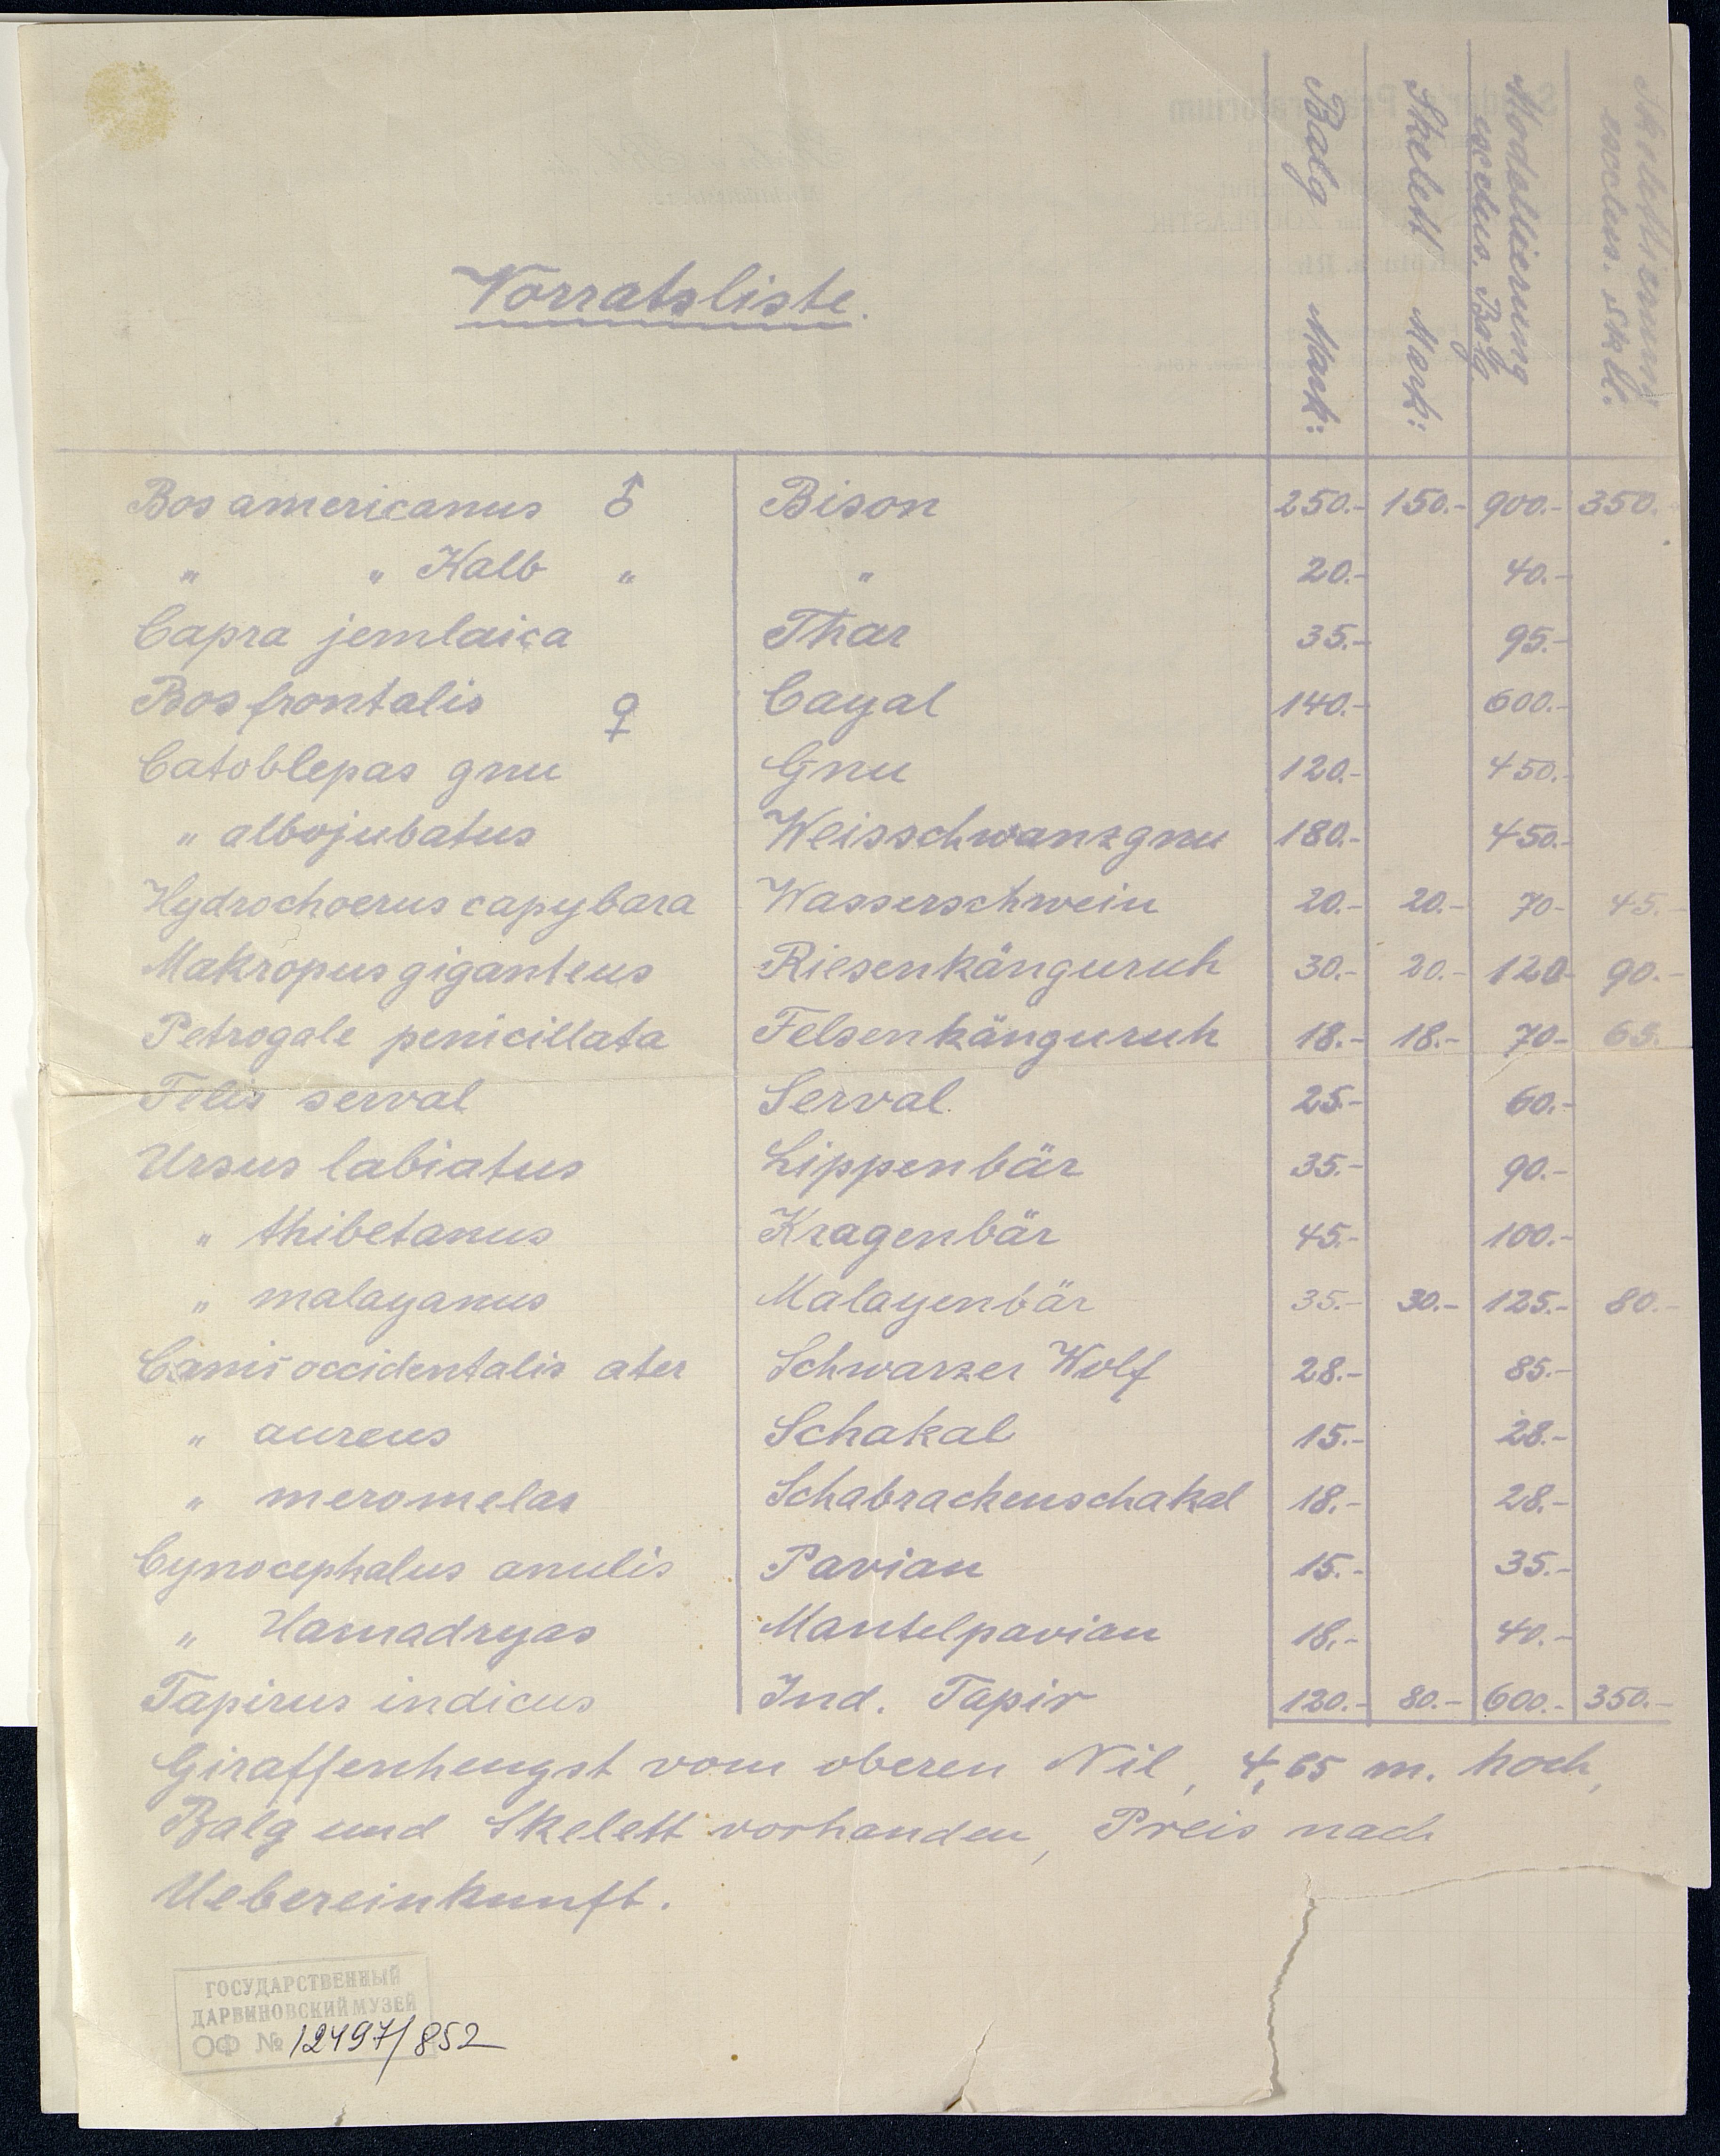 Vorratsliste.
Balg Mark:
Skelett Mark:
Modellierung
exclus. Balg
Skelettierung
exclus. Skell.
Bos americanus ♂ Bison 250.- 150.- 900.- 350.
„ „ Kalb „ „ 20.- 40.-
Capra jemlaica Thar 35.- 95.-
Bos frontalis ♀ Cayal 140.- 600.-
Catoblepas gnu Gnu 120.- 450.-
„ albojubatus Weissschwanzgnu 180.- 450.-
Hydrochoerus capybara Wasserschwein 20.- 20.- 70- 45.-
Makropus giganteus Riesenkänguruh 30.- 20.- 120- 90.-
Petrogale penicillata Felsenkänguruh 18.- 18.- 70-
Felis serval Serval. 25.- 60.-
Ursus labiatus Lippenbär 35.- 90.-
„ thibetanus Kragenbär 45.- 100.-
„ malayanus Malayenbär 35.- 30.- 125.- 80.-
Canis occidentalis ater Schwarzer Wolf 28.- 85.-
„ aureus Schakal 15.- 28.-
„ meromelas Schabrackenschakal 18.- 28.-
Cynocephalus anulis Pavian 15.- 35.-
„ Hamadryas Mantelpavian 18.- 40.-
Tapirus indicus Ind. Tapir 120.- 80.- 600.- 350.-
Giraffenhengst vom oberen Nil, 4,65 m. hoch,
Balg und Skelett vorhanden, Preis nach
Uebereinkunft.
ГОСУДАРСТВЕННЫЙ
ДАРВИНОВСКИЙ МУЗЕЙ
ОФ № 12497/852